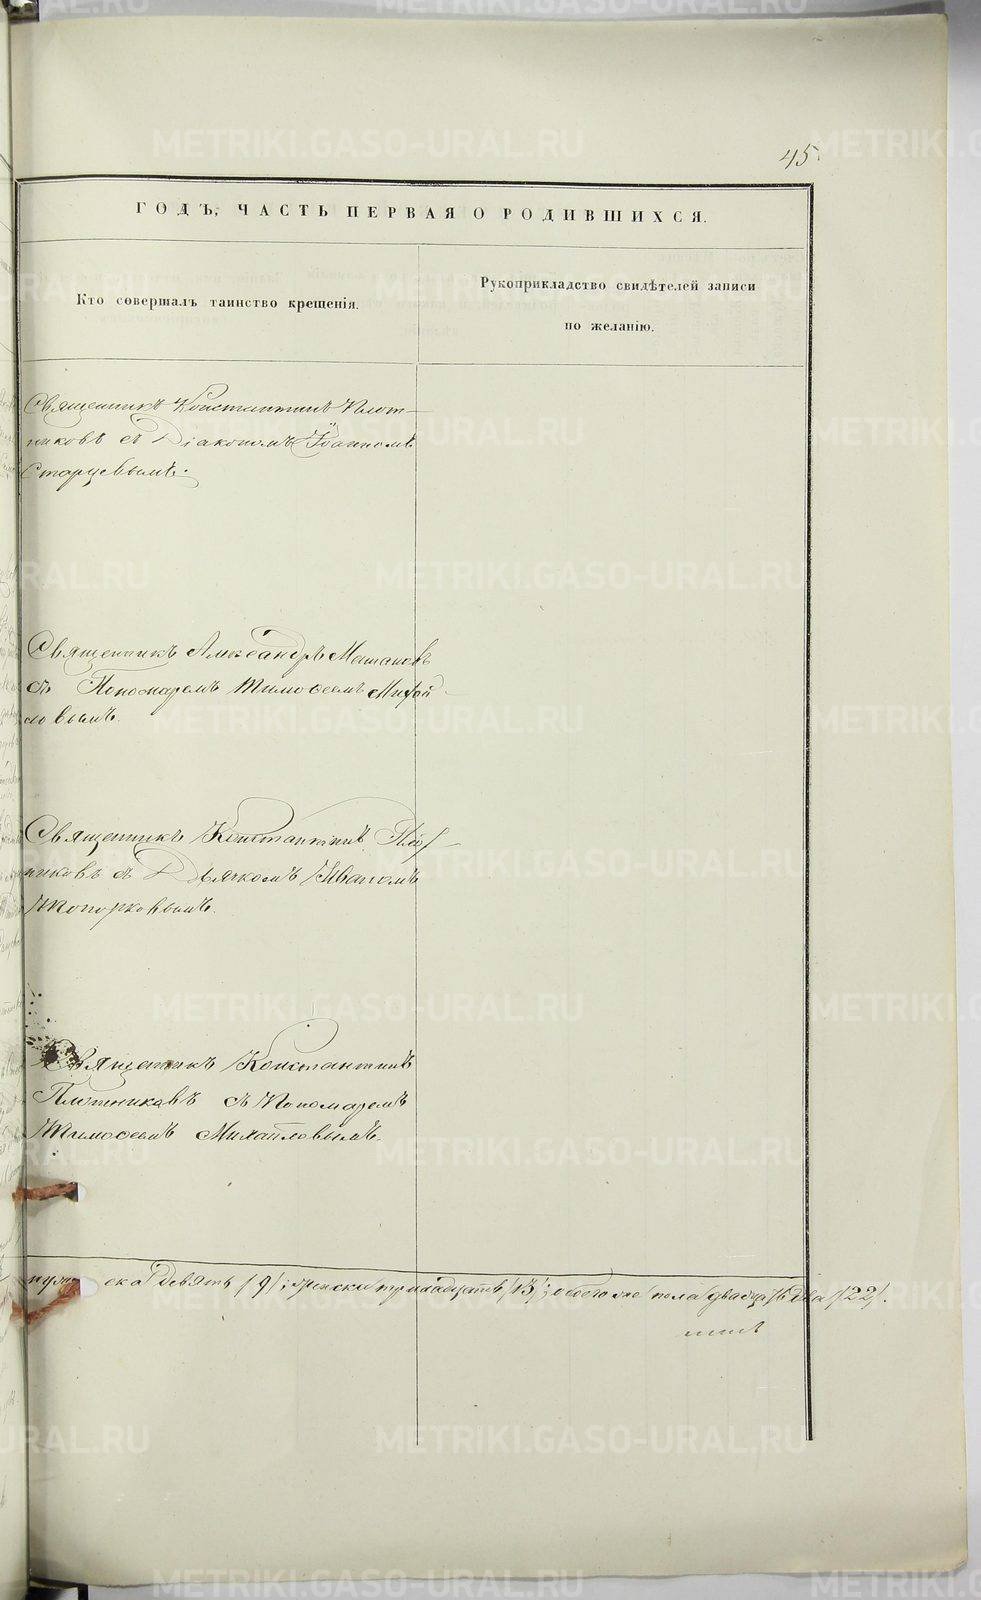 45.
ГОДЪ, ЧАСТЬ ПЕРВАЯ О РОДИВШИХСЯ.
Кто совершалъ таинство крещенія.
Рукоприкладство свидѣтелей записи
по желанію.
Священникъ Константинъ Плот-
никовъ съ Діакономъ Іоанномъ
Старцевымъ.
Священникъ Александръ Машановъ
съ Пономаремъ Тимоѳеемъ Михай-
ловымъ.
Священникъ Константинъ Плот-
никовъ съ Дьячкомъ Иваномъ
Топорковымъ.
Священникъ Константинъ
Плотниковъ съ Пономаремъ
Тимоѳеемъ Михайловымъ.
девять /9/; женска тринадцать /13/; обоего же пола двадцать два /22/.
METRIKI.GASO-URAL.RU